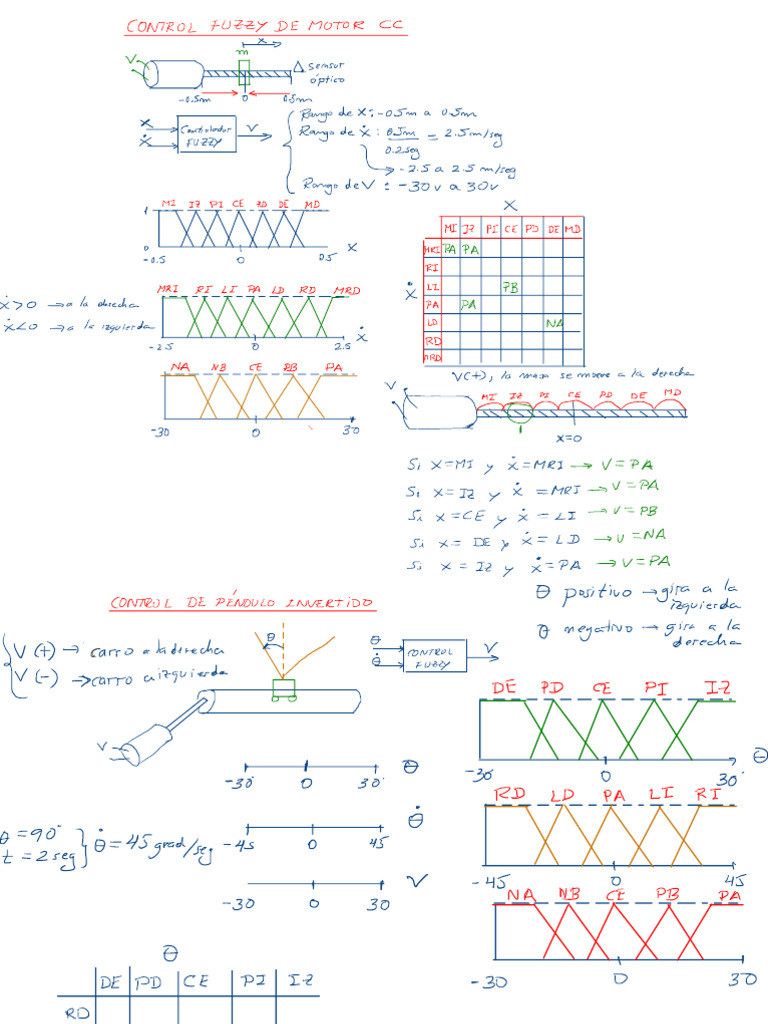 CONTROL FUZZY DE MOTOR CC
x
m
V
Sensor
óptico
-0.5m 0 0.5m
x
ẋ
Controlador
FUZZY
V
Rango de x: -0.5m a 0.5m
Rango de ẋ: 0.5m = 2.5 m/seg
0.2seg
-2.5 a 2.5 m/seg
Rango de V: -30V a 30V
MI IZ PI CE PD DE MD
1
0
-0.5 0 0.5 x
ẋ>0 → a la derecha
ẋ<0 → a la izquierda
MRI RI LI PA LD RD MRD
-2.5 0 2.5 ẋ
NA NB CE PB PA
-30 0 30
X
MI IZ PI CE PD DE MD
MRI PA PA
RI
ẋ
LI PB
PA PA
LD NA
RD
MRD
V(+), la masa se mueve a la derecha
V
MI IZ PI CE PD DE MD
x=0
Si x=MI y ẋ=MRI → V=PA
Si x=IZ y ẋ=MRI → V=PA
Si x=CE y ẋ=LI → V=PB
Si x=DE y ẋ=LD → V=NA
Si x=IZ y ẋ=PA → V=PA
θ positivo → gira a la
izquierda
θ negativo → gira a la
derecha
CONTROL DE PÉNDULO INVERTIDO
V (+) → carro a la derecha
V (-) → carro a izquierda
θ
V
θ
θ̇
CONTROL
FUZZY
V
-30° 0 30° θ
-45 0 45 θ̇
-30 0 30 V
θ=90°
t=2seg
θ̇=45 grad/seg
DE PD CE PI IZ
-30° 0 30° θ
RD LD PA LI RI
-45 0 45
NA NB CE PB PA
-30 0 30
θ
DE PD CE PI IZ
RD